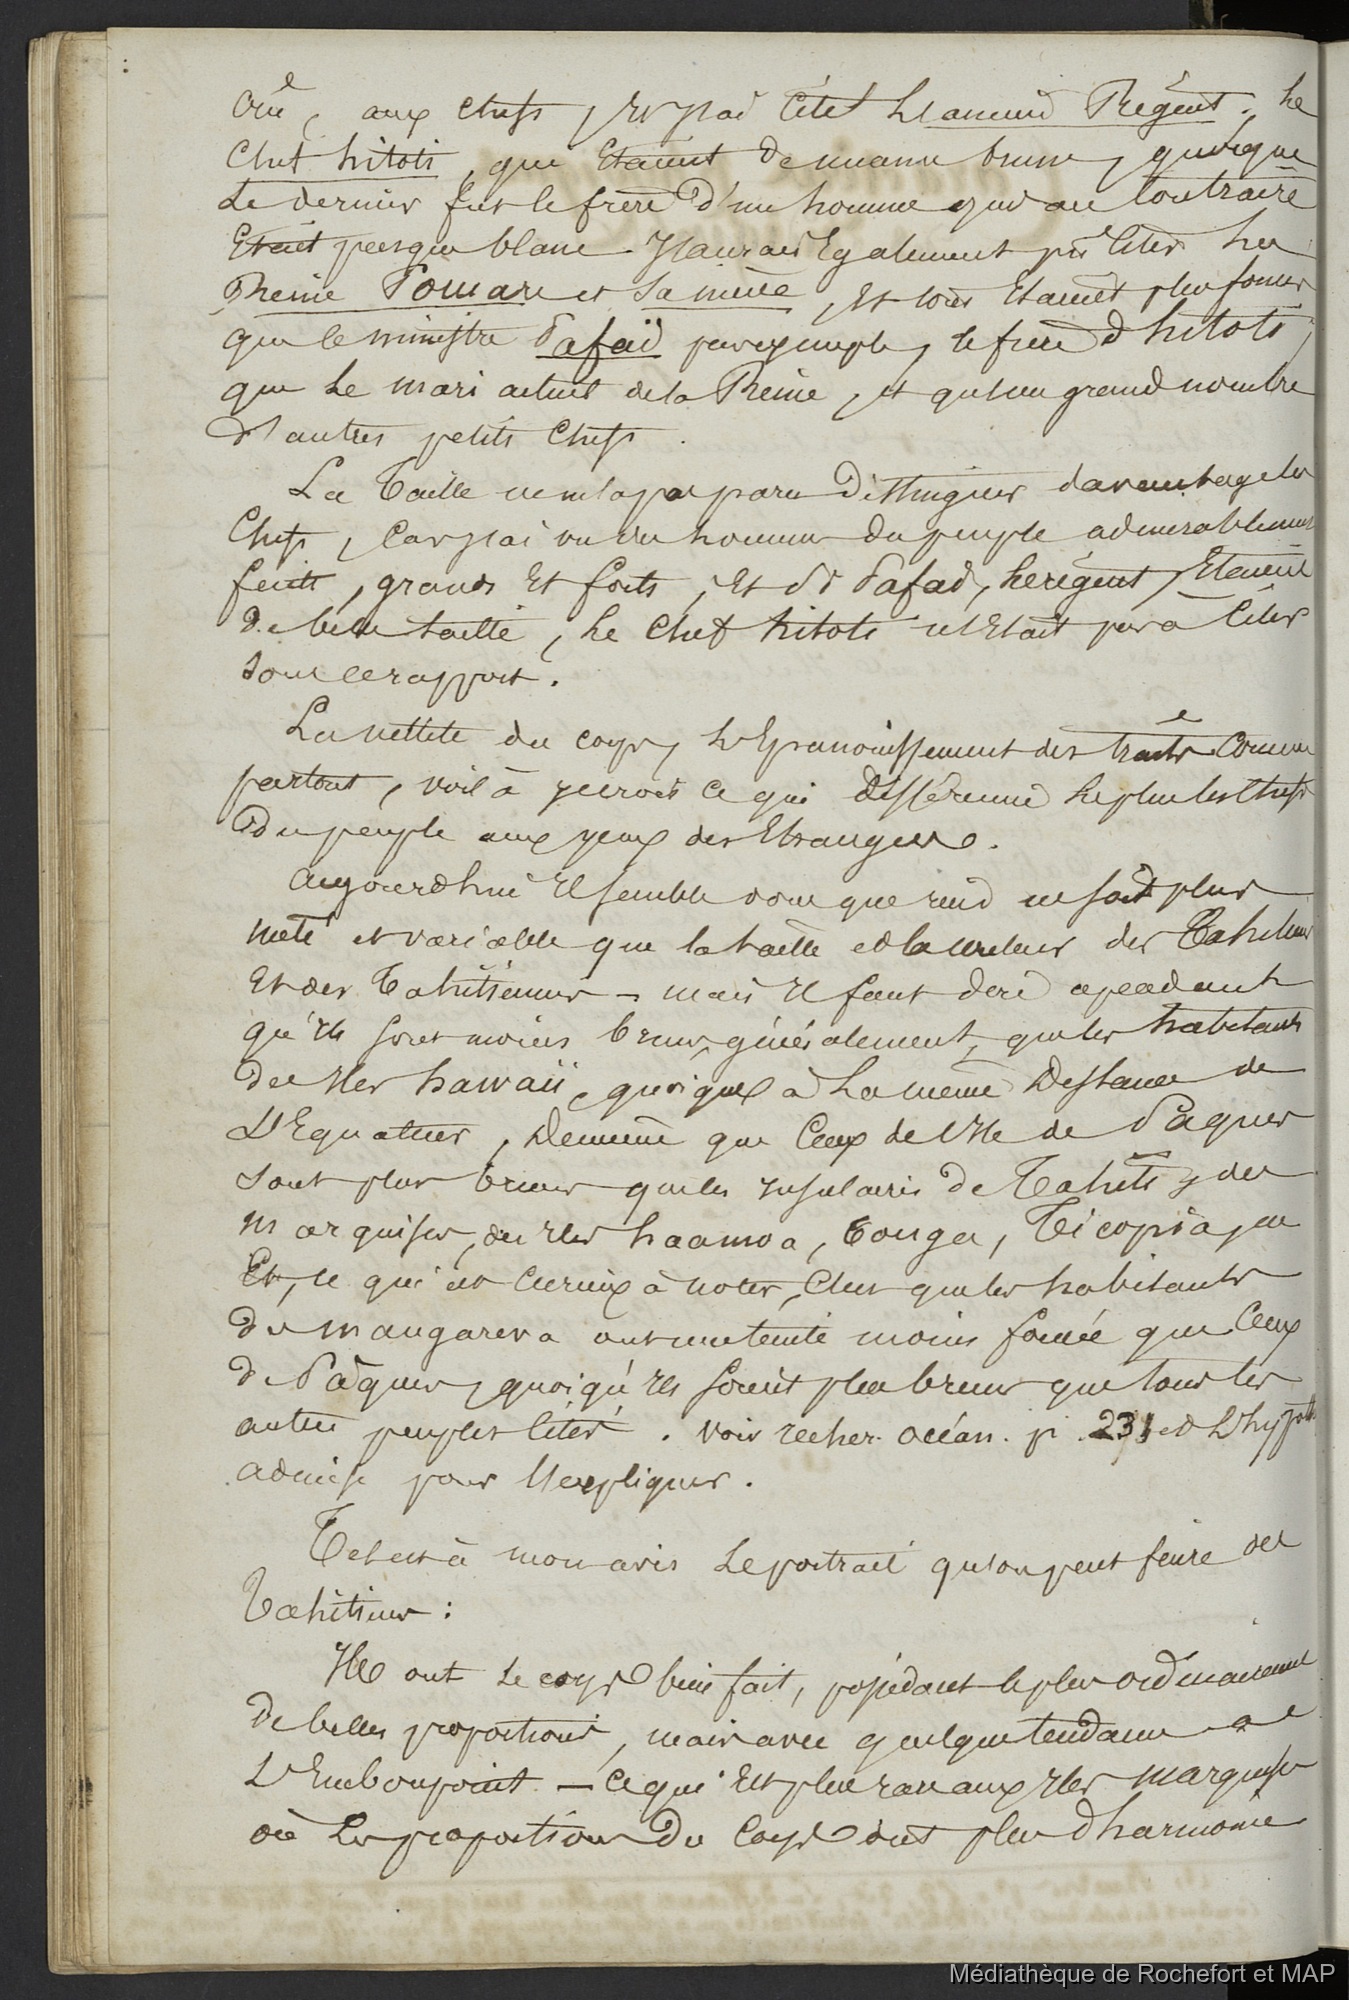 aux chefs, et j'ai cité l'ancien Régent, le
Chef hitoti, qui étaient de nuance brune, quoique
le dernier fut le frère d'un homme qui au contraire
était presque blanc. J'aurais également pû citer la
Reine Pomare et sa mère, et tous étaient plus foncés
que le ministre Pafaï par exemple, le frère d'hitoti,
que le mari actuel de la Reine, et qu'un grand nombre
d'autres petits chefs.
La Taille ne m'a pas paru distinguer davantage les
Chefs, car j'ai vu des hommes du peuple admirablement
faits, grands et forts, et si Pafaï, le régent, étaient
de belle taille, le Chef hitoti n'était pas à citer
sous ce rapport.
La netteté du corps, l'épanouissement des traits comme
partout, voilà je crois ce qui différencie le plus les chefs
du peuple aux yeux des Etrangers.
Aujourd'hui il semble donc que rien ne soit plus
mêlé et variable que la taille et la couleur des Tahitiens
et des Tahitiennes – mais il faut dire cependant
qu'ils sont moins bruns généralement, que les habitants
des Iles hawaii, quoique à la même distance de
l'Equateur, de même que ceux de l'Ile de Pâques
sont plus bruns que les insulaires de Tahiti, des
marquises, des Iles haamoa, Tonga, Ticopia,
Et, ce qui est curieux à noter, c'est que les habitants
de mangareva ont une teinte moins foncée que ceux
de Pâques, quoiqu'ils soient plus bruns que tous les
autres peuples cités. voir recher. océan. p. 231 et l'hypoth
admise pour l'expliquer.
Tel est à mon avis le portrait qu'on peut faire des
Tahitiens :
Ils ont le corps bien fait, possédant le plus ordinairement
de belles proportions, mais avec quelque tendance à
l'Embonpoint – ce qui est plus rare aux Iles marquises
où les proportions du corps ont plus d'harmonie
Médiathèque de Rochefort et MAP